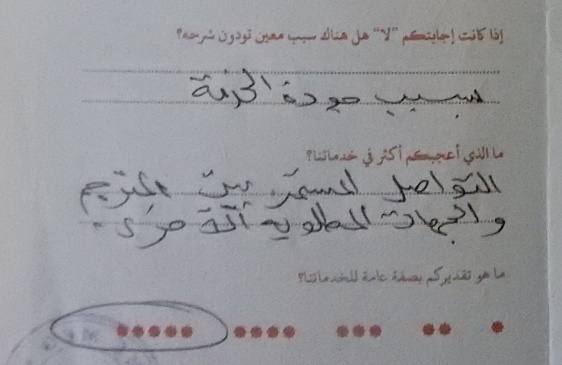 إذا كانت إجابتكم "لا" هل هناك سبب معين تودون شرحه؟
بسبب جودة الخدمة
ما الذي أعجبكم أكثر في خدماتنا؟
التواصل المستمر بين المترجم
والجهات المطلوبة
ما هو تقديركم بصفة عامة للخدماتنا؟